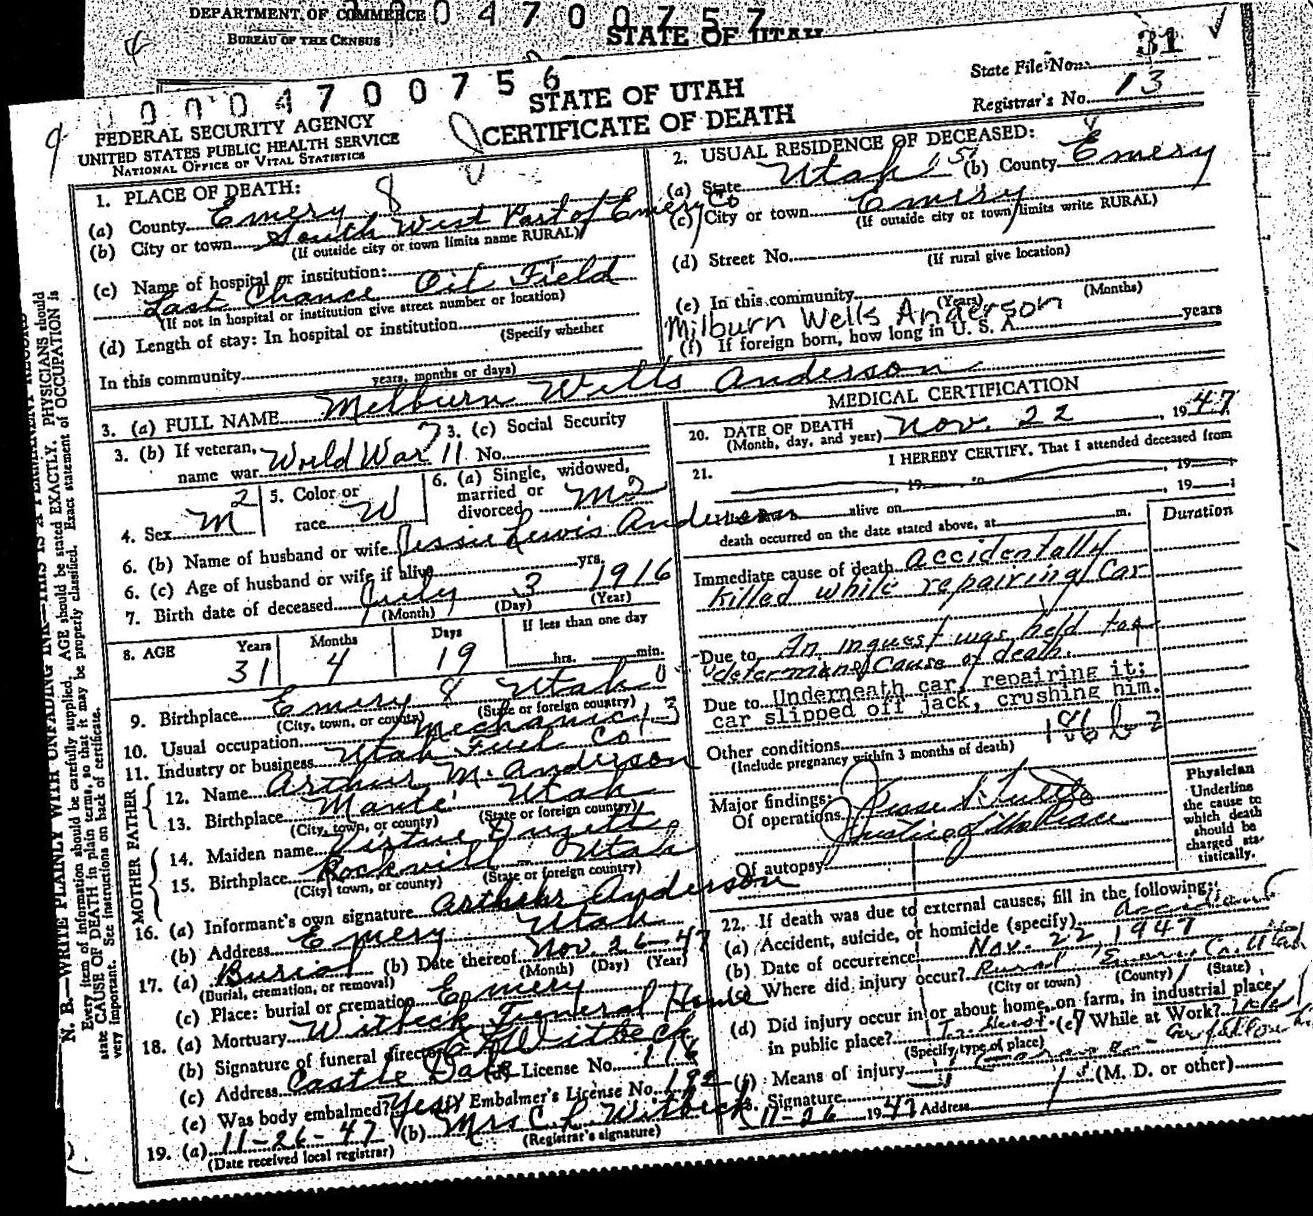 DEPARTMENT OF COMMERCE
BUREAU OF THE CENSUS
0 4 7 0 0 7 5 7
STATE OF UTAH
0 0 0 4 7 0 0 7 5 6
FEDERAL SECURITY AGENCY
UNITED STATES PUBLIC HEALTH SERVICE
NATIONAL OFFICE OF VITAL STATISTICS
STATE OF UTAH
CERTIFICATE OF DEATH
State File No. 31
Registrar's No. 13
1. PLACE OF DEATH: 8
(a) County Emery
(b) City or town South West Part of Emery Co
(If outside city or town limits name RURAL)
(c) Name of hospital or institution:
Last Chance Oil Field
(If not in hospital or institution give street number or location)
(d) Length of stay: In hospital or institution
(Specify whether
In this community
years, months or days)
2. USUAL RESIDENCE OF DECEASED:
(a) State Utah (b) County Emery
(c) City or town Emery
(If outside city or town limits write RURAL)
(d) Street No.
(If rural give location)
(e) In this community
(Years) (Months)
Milburn Wells Anderson
(f) If foreign born, how long in U. S. A. years
3. (a) FULL NAME Milburn Wells Anderson
3. (b) If veteran, name war World War 11
3. (c) Social Security No.
4. Sex M
5. Color or race W
6. (a) Single, widowed, married or divorced M
6. (b) Name of husband or wife Jessie Lewis Anderson
6. (c) Age of husband or wife if alive yrs.
7. Birth date of deceased July 3 1916
(Month) (Day) (Year)
8. AGE Years Months Days If less than one day
31 4 19 hrs. min.
9. Birthplace Emery 8 Utah 0
(City, town, or county) (State or foreign country)
10. Usual occupation Mechanic
11. Industry or business Utah Fuel Co
FATHER
12. Name Arthur M. Anderson
13. Birthplace Manti Utah
(City, town, or county) (State or foreign country)
MOTHER
14. Maiden name
15. Birthplace Rockvill Utah
(City, town, or county) (State or foreign country)
16. (a) Informant's own signature Arthur Anderson
(b) Address Emery Utah
17. (a) Burial (b) Date thereof Nov. 26-47
(Burial, cremation, or removal) (Month) (Day) (Year)
(c) Place: burial or cremation Emery
18. (a) Mortuary Witbeck Funeral Home
(b) Signature of funeral director Witbeck
(c) Address Castle Dale (d) License No.
(e) Was body embalmed? Yes (f) Embalmer's License No. 192
19. (a) 11-26-47 (b) Mrs C. L. Witbeck
(Date received local registrar) (Registrar's signature)
MEDICAL CERTIFICATION
20. DATE OF DEATH
(Month, day, and year) Nov. 22, 1947
21. I HEREBY CERTIFY, That I attended deceased from
, 19 , 19
alive on , 19
death occurred on the date stated above, at m.
Duration
Immediate cause of death accidentally
killed while repairing car
Due to An inquest was held to
determine cause of death.
Due to Underneath car, repairing it;
car slipped off jack, crushing him.
Other conditions
(Include pregnancy within 3 months of death)
Major findings:
Of operations
Jesse S. Tuttle
Justice of the Peace
Of autopsy
Physician
Underline
the cause to
which death
should be
charged sta-
tistically.
22. If death was due to external causes, fill in the following:
(a) Accident, suicide, or homicide (specify) accident
(b) Date of occurrence Nov. 22, 1947
(c) Where did injury occur? Rural Emery Co. Utah
(City or town) (County) (State)
(d) Did injury occur in or about home, on farm, in industrial place,
in public place? (e) While at Work?
(Specify type of place)
(f) Means of injury
Signature (M. D. or other)
11-26 1947 Address
N. B.—WRITE PLAINLY WITH UNFADING INK—THIS IS A PERMANENT RECORD
Every item of information should be carefully supplied. AGE should be stated EXACTLY. PHYSICIANS should
state CAUSE OF DEATH in plain terms, so that it may be properly classified. Exact statement of OCCUPATION is
very important. See instructions on back of certificate.